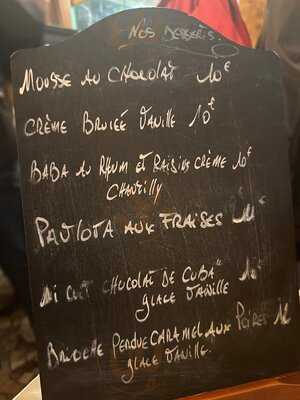 - Nos Desserts. -
Mousse au chocolat 10€
Crème Brulée Vanille 10€
Baba au Rhum et Raisins crème 10€
Chantilly
Pavlova aux fraises 11€
Mi cuit "chocolat de Cuba"
glace vanille
Brioche Perdue caramel aux Poires
glace Vanille.